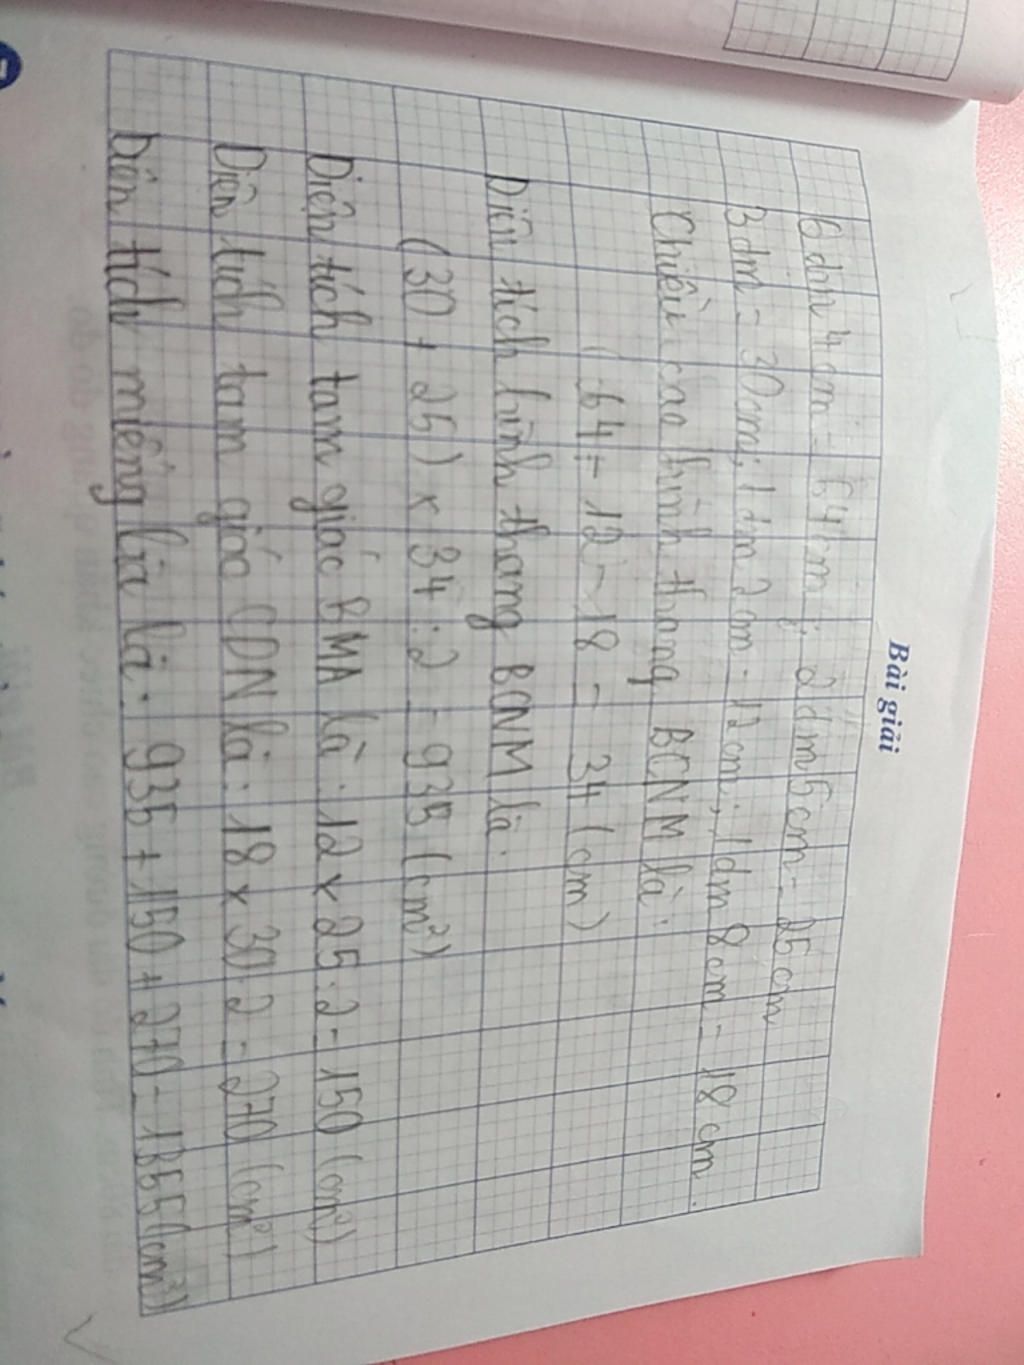 Bài giải
6dm 4cm = 64cm; 2dm5cm = 25cm
3dm = 30cm; 1dm 2cm = 12cm; 1dm 8cm = 18cm.
Chiều cao hình thang BCNM là:
64 - 12 - 18 = 34 (cm)
Diện tích hình thang BCNM là:
(30 + 25) x 34 : 2 = 935 (cm²)
Diện tích tam giác BMA là: 12 x 25 : 2 = 150 (cm²)
Diện tích tam giác CDN là: 18 x 30 : 2 = 270 (cm²)
Diện tích miếng bìa là: 935 + 150 + 270 = 1355 (cm²)